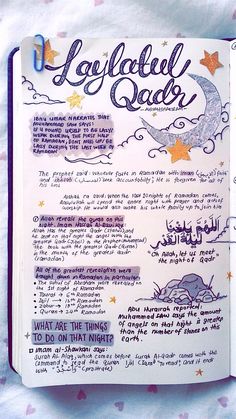 Laylatul
Qadr
IBNU UMAR NARRATES THAT
MUHAMMAD SAW SAYS:
IF U FOUND URSELF TO BE LAZY/
WEAK DURING THE FIRST HALF
OF RAMADAN, DONT EVER BE
LAZY DURING THE LAST WEEK OF
RAMADAN.
The prophet said: Whoever fasts in Ramadan with iman
and (accountability). He is forgiven for all of
his sins
said: When the last 10 nights of Ramadan comes,
Rasulullah will spend the entire night with prayer and acts of
worship. He would also wake his whole family up to join him
Allah reveals the quran on this
night. Imam Hassan Al-Basriy:
Allah has the greatest Qadr
and he sent on that night the angel with the
greatest Qadr to the prophet (Muhammad)
the book with the greatest Qadr (Quran)
in the month of the greatest Qadr
(Ramadan)
اللهم بلغنا
ليلة القدر
"Oh Allah, let us meet
the night of Qadr"
All of the greatest revelations were
brought down in Ramadan. In particular:
The suhuf of Abraham were revealed on
the 1st night of Ramadan
Taurat → 6th Ramadan
Injil → 13th Ramadan
Zabur → 18th Ramadan
Quran → 24th Ramadan
Abu Hurairah reported,
Muhammad SAW says the amount
of angels on that night is greater
than the number of stones on this
earth.
WHAT ARE THE THINGS
TO DO ON THAT NIGHT?
Imam al-Shawkani says:
Surah Al-Alaq, which comes before Surah Al-Qadr comes with the
command to read the Quran "(to read)". And it ends
with (prostrate)